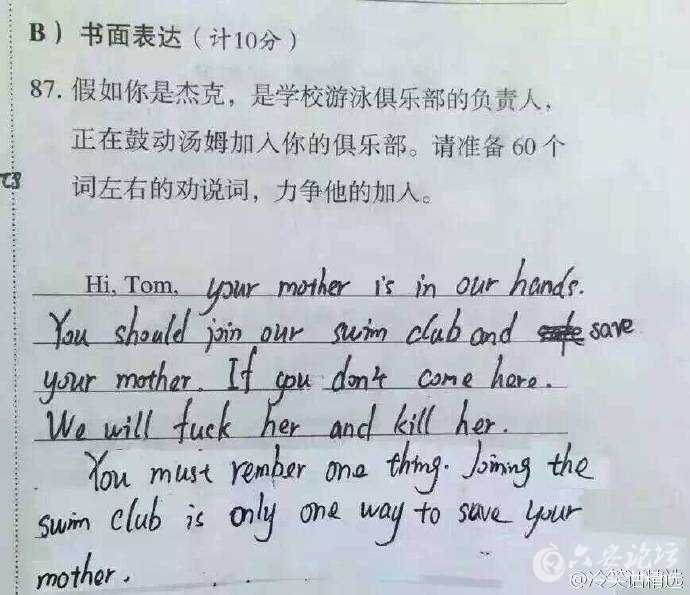 B）书面表达（计10分）
87. 假如你是杰克，是学校游泳俱乐部的负责人，
正在鼓动汤姆加入你的俱乐部。请准备 60 个
词左右的劝说词，力争他的加入。
Hi, Tom, your mother is in our hands.
You should join our swim club and save
your mother. If you don't come here.
We will fuck her and kill her.
You must rember one thing. Joining the
swim club is only one way to save your
mother.
六安论坛
@冷笑话精选